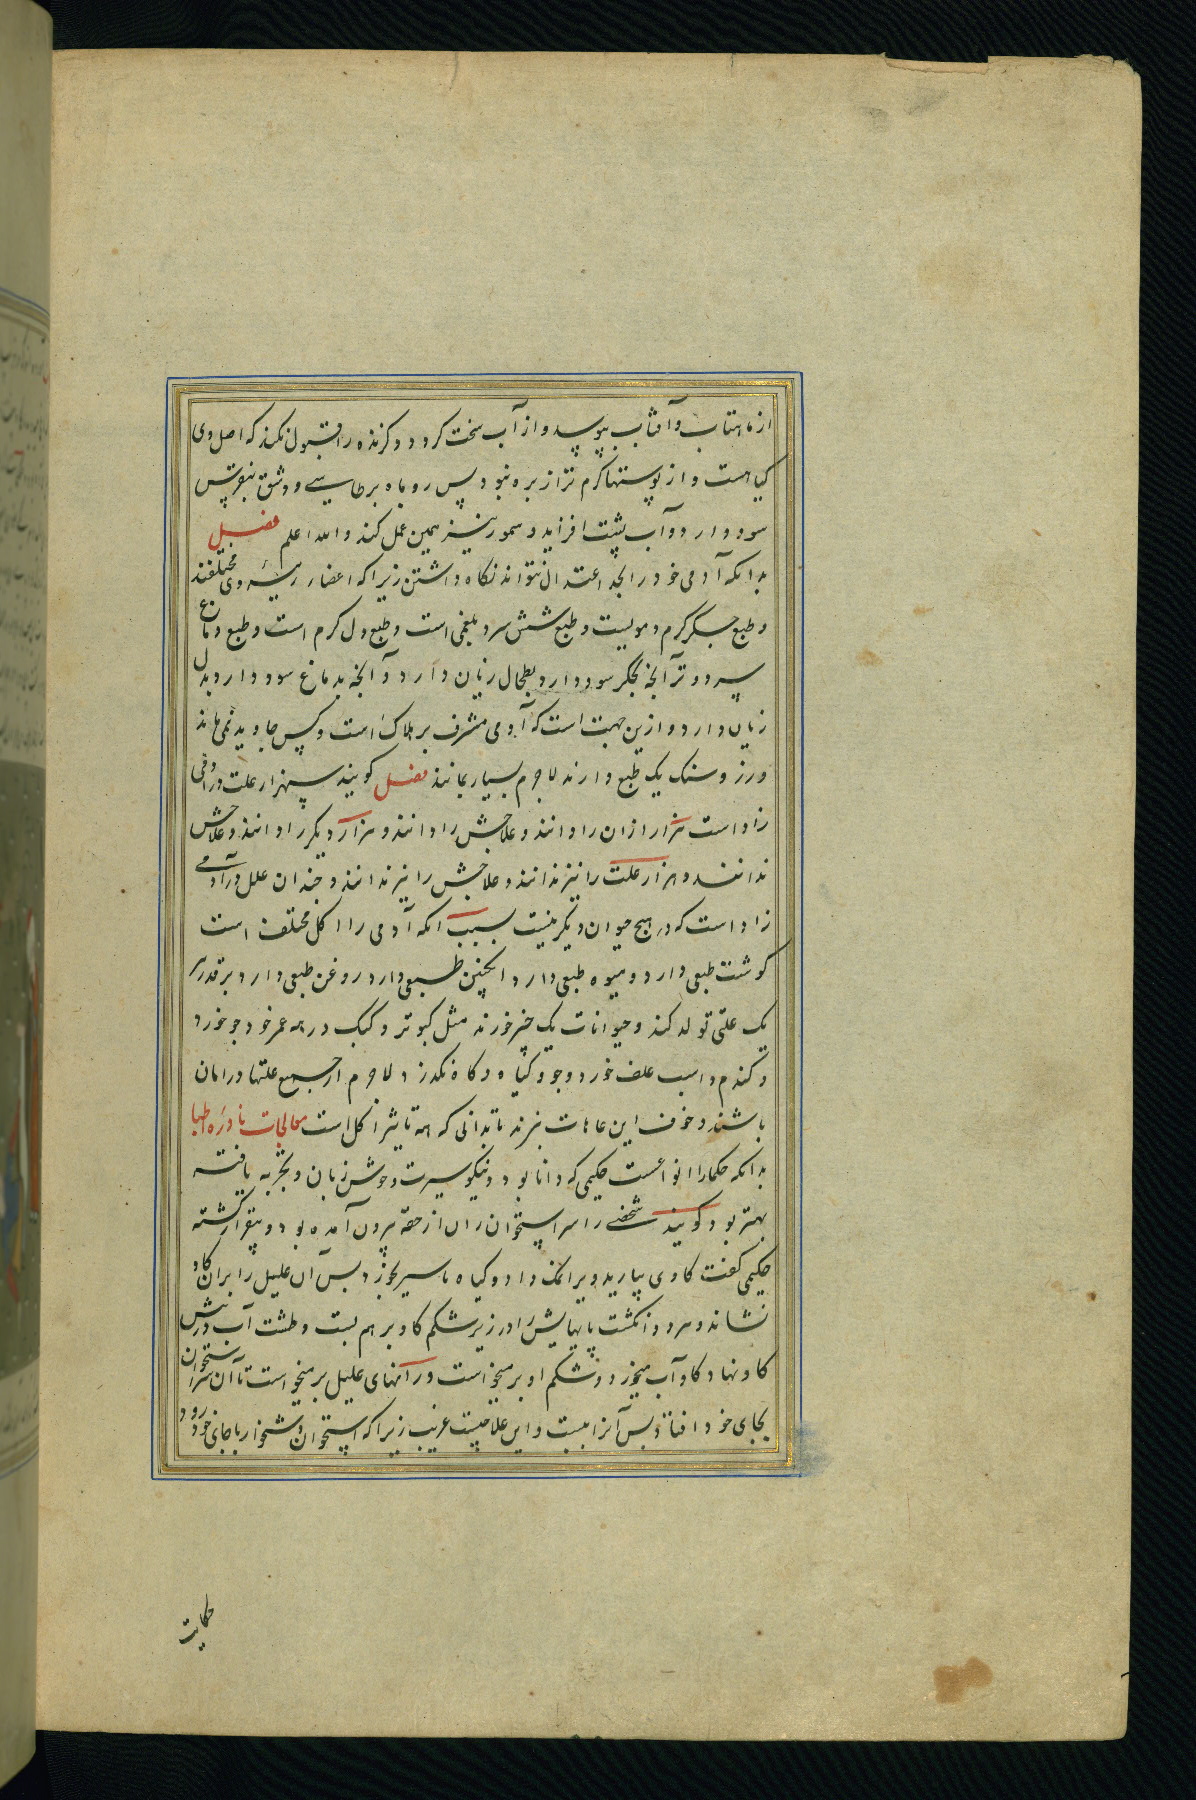 از ماهتاب و آفتاب بپوسد و از آب سخت کردد و کزنده را قبول نکند که اصل وی
کیاهست و از پوستها کرم تر از بره نبود پس روباه برطاسی و وشق
سود دارد و آب پشت افزاید و سمور نیز همین عمل کند والله اعلم فصل
بدانکه آدمی خود را بحد اعتدال نتواند نکاه داشتن زیرا که اعضاء رئیسه وی مختلفند
و طبع جکر کرم و مولیست و طبع شش سرد بلغمی است و طبع دل کرم است و طبع دماغ
سرد و تر آنچه بجکر سود دارد بطحال زیان دارد و آنچه بدماغ سود دارد بدل
زیان دارد و ازین جهت است که آدمی مشرف بر هلاک است و کس جاوید نمی ماند
و رز و سنک یک طبع دارند لاجرم بسیار بمانند فصل کویند سهزار علت در آدمی
زاد است هزار ازان را دانند و علاجش را دانند و هزار دیکر را دانند و علاجش
ندانند و هزار علت را نیز ندانند و علاجش را نیز ندانند و چندان علل در آدمی
زاد است که در هیچ حیوان دیکر نیست بسبب انکه آدمی را اکل مختلف است
کوشت طبعی دارد و میوه طبعی دارد انجبین طبعی دارد روغن طبعی دارد بر قدر
یک علتی تولد کند و حیوانات یک چیز خورند مثل کبوتر و کبک در همه عمر خود جو خورد
و کندم و اسب علف خورد و جو و کیاه و کاه نکذرد لاجرم از جمیع علتها در امان
باشند و خوف این عاهات نبرند تا بدانی که همه تاثیر اکل است معالجات نادره اطبا
بدانکه حکما را انواعست حکیمی که دانا بود و نیکو سیرت و خوش زبان و تجربه یافته
بهتر بود کویند شخصی را سر استخوان ران از حقه بیرون آمده بود و بیقرار کشته
حکیمی کفت کاوی بیارید و یرا نمک داد و کیاه تا سیر بخورد پس آن علیل را بر ان کاو
نشاند و هر دو انکشت پایهایش را در زیر شکم کاو بر هم بست و طشت آب در پیش
کاو نهاد کاو آب میخورد و شکم او بر میخواست و رانهای علیل بر میخواست تا آن سر استخوان
بجای خود افتاد پس آنرا ببست و این علاجیست غریب زیرا که استخوان دشخوار با جای خود رود
حکایت